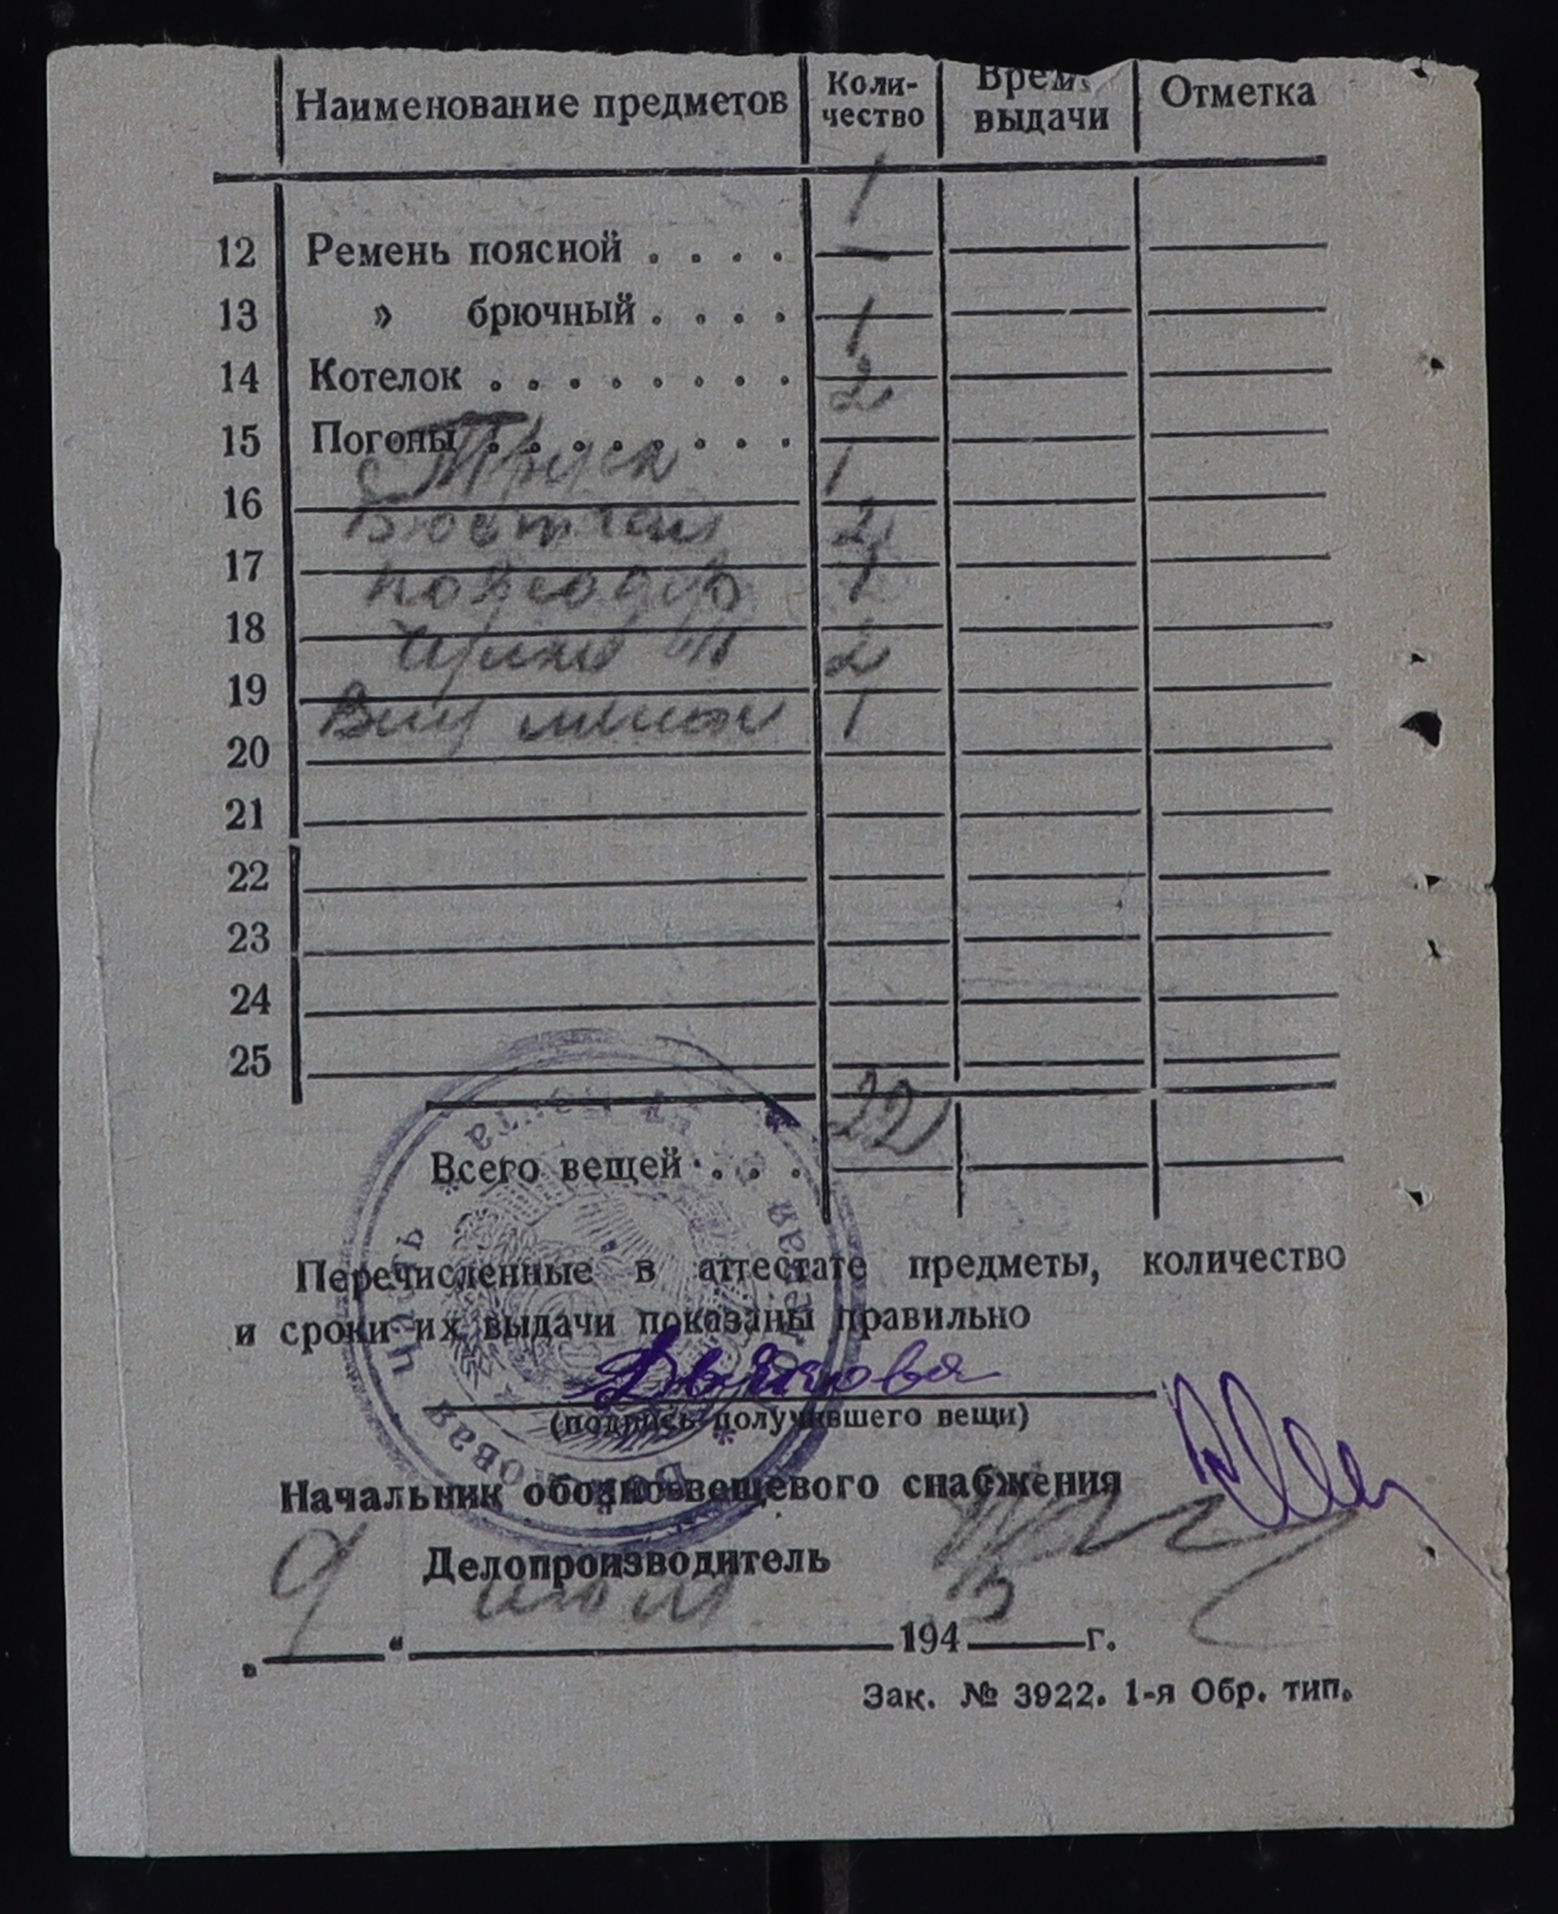 Наименование предметов Коли-чество Врем. выдачи Отметка
12 Ремень поясной . . . . 1
13 » брючный . . . . —
14 Котелок . . . . . . . . 1
15 Погоны . . . . . . . . 2
16 Труси 1
17 Бюстгал 2
18 2
19 Чулки х/б 2
20 Вещ мешок 1
21
22
23
24
25
Всего вещей . . . 22
Перечисленные в аттестате предметы, количество
и сроки их выдачи показаны правильно
Дьякова
(подпись получившего вещи)
Начальник обозно-вещевого снабжения
Делопроизводитель
„ 9 “ июля 1945 г.
Зак. № 3922. 1-я Обр. тип.
часть